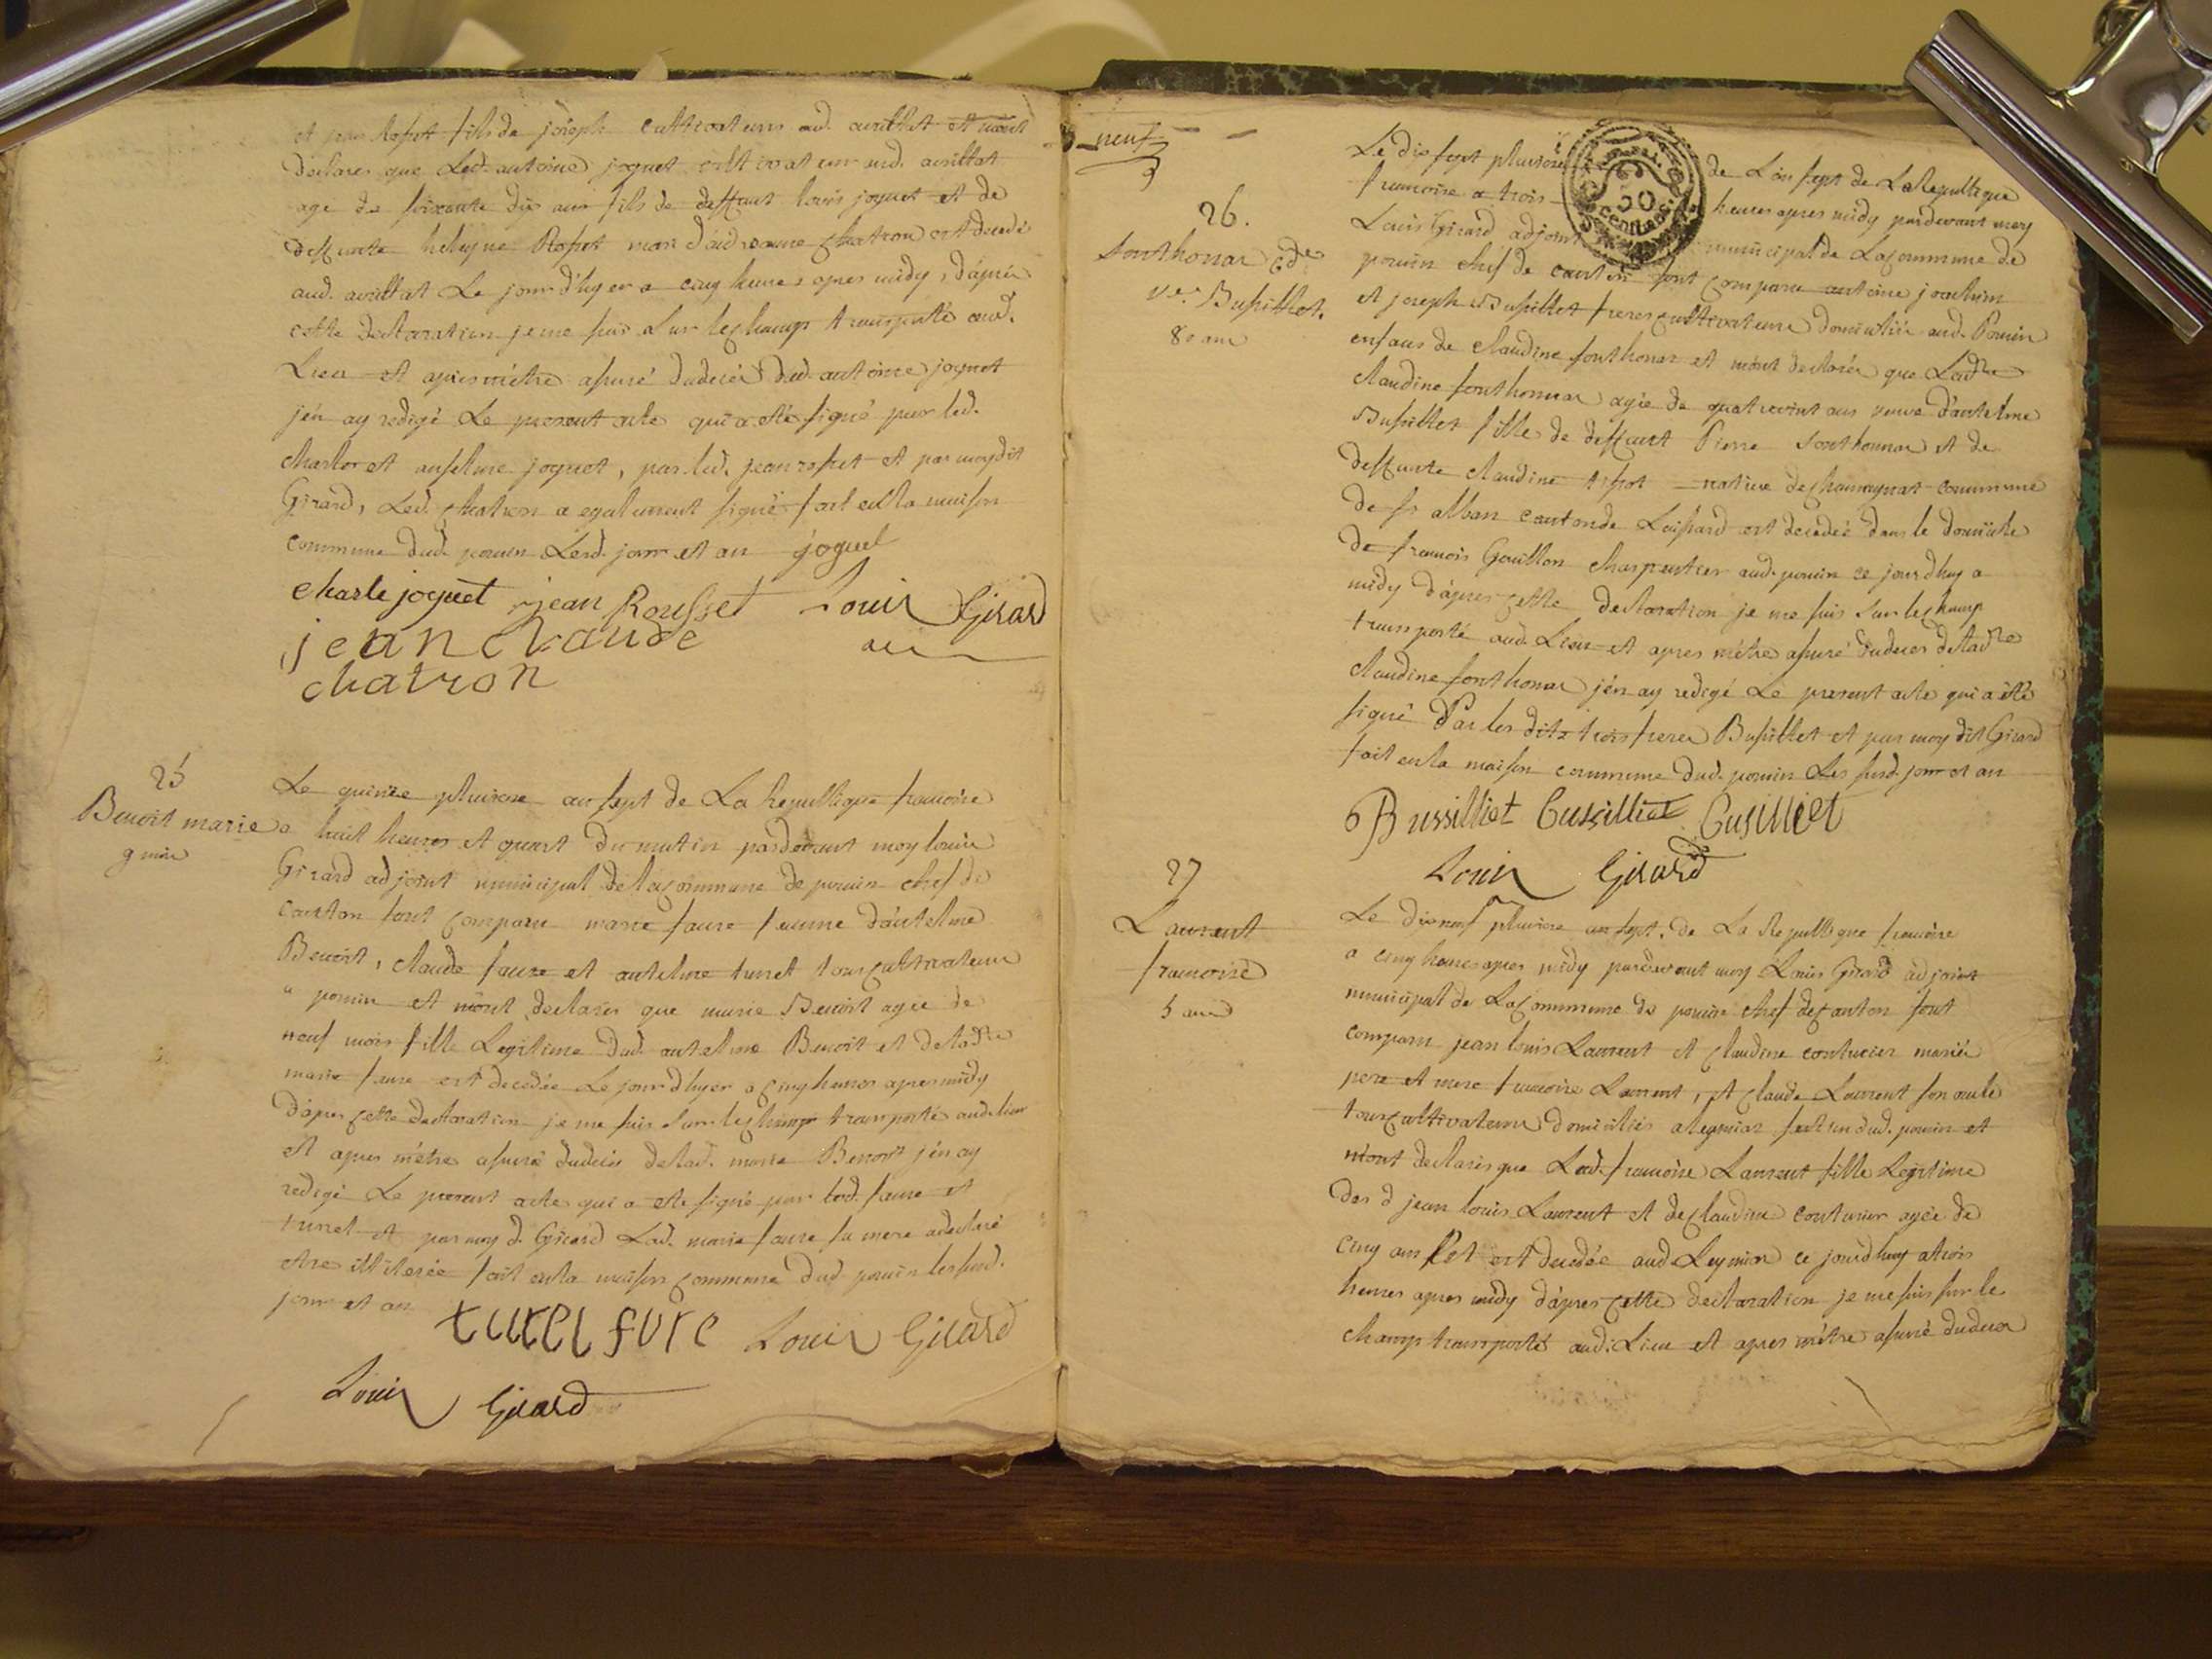 et jean Rosset fils de joseph cultivateurs aud. avrillat et m'ont
declarés que Led. antoine joguet cultivateur aud. avrillat
agé de soixante dix ans fils de deffunt louis joguet et de
deffunte heleyne Rosset mari d'andreanne chatron est decedé
aud. avrillat Le jour d'hyer a cinq heures apres midy, d'après
cette declaration je me suis sur le champ transporté aud.
Lieu et apres m'étre assuré du decés dud. antoine joguet
j'en ay redigé Le present acte qui a eté signé par led.
charles et anselme joguet, par led. jean rosset et par moydit
Girard, Led. chatron a egalement signé fait en la maison
commune dud. poncin Lesd. jour et an joguet
charle joguet jean Rousset Louis Girard
jean claude adj
chatron
25
Benoit marie
9 mois
Le quinze pluviose an sept de La Republique francoise
a huit heures et quart du matin pardevant moy louis
Girard adjoint municipal de la commune de poncin chef de
canton sont comparu marie faure femme d'antelme
Benoit, claude faure et antelme turret tous cultivateurs
a poncin et m'ont declarés que marie Benoit agée de
neuf mois fille Legitime dud. antelme Benoit et de lad.te
marie faure est decedée Le jour d'hyer a cinq heures apres midy
d'apres cette declaration je me suis sur le champ transporté aud. lieu
et apres m'étre assuré du decés de lad. marie Benoit j'en ay
redigé Le present acte qui a eté signé par led. faure et
turret et par moy d. Girard Lad. marie faure sa mere a declaré
etre illiterée fait en la maison commune dud. poncin les susd.
jour et an turel fore Louis Girard
Louis Girard
neuf
26.
Sonthonax Cde
ve. Bussillet.
80 ans
Le dix sept pluviose de L'an sept de La Republique
francoise a trois heures apres midy pardevant moy
Louis Girard adjoint municipal de La commune de
poncin chef de canton sont comparu antoine joachim
et joseph Bussillet freres cultivateurs domiciliés aud. Poncin
enfans de claudine sonthonax et m'ont declarés que Ladte
claudine sonthonax agée de quatrevint ans veuve d'antelme
Bussillet fille de deffunt Pierre Sonthonax et de
deffunte claudine tissot native de chamagnat commune
de st alban canton de Leissard est decedée dans le domicile
de francois Gouillon charpentier aud. poncin ce jourdhuy a
midy d'apres cette declaration je me suis sur le champ
transporté aud. Lieu et apres m'étre assuré du decés de ladte
claudine sonthonax j'en ay redigé Le present acte qui a été
signé Par les dits trois freres Bussillet et par moy dit Girard
fait en la maison commune dud. poncin Les susd. jour et an
Bussilliet Bussilliet Busilliet
Louis Girard
27
Laurent
francoise
5 ans
Le dix neuf pluviose an sept. de La Republique francoise
a cinq heures apres midy pardevant moy Louis Girard adjoint
municipal de La commune de poncin chef de canton sont
comparu jean louis Laurent et claudine couturier mariés
pere et mere francoise Laurent, et claude Laurent son oncle
tous cultivateurs domiciliés a leymiat section dud. poncin et
m'ont declarés que Lad. francoise Laurent fille Legitime
des d jean louis Laurent et de claudine couturier agée de
cinq ans est decedée aud Leymiat ce jourdhuy a trois
heures apres midy d'apres cette declaration je me suis sur le
champ transporté aud. Lieu et apres m'étre assuré du deces